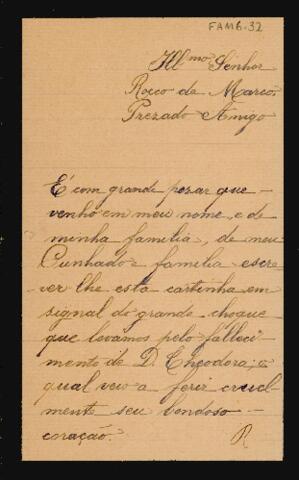 FAMB-32
Ill.mo Senhor
Rocco de Marco
Prezado Amigo
É com grande pezar que
venho em meu nome, e de
minha familia, de meu
Cunhado e familia escre-
ver lhe esta cartinha em
signal do grande choque
que levamos pelo falleci-
mento de D. Theodora, o
qual veio a ferir cruel
mente seu bondoso
coração.